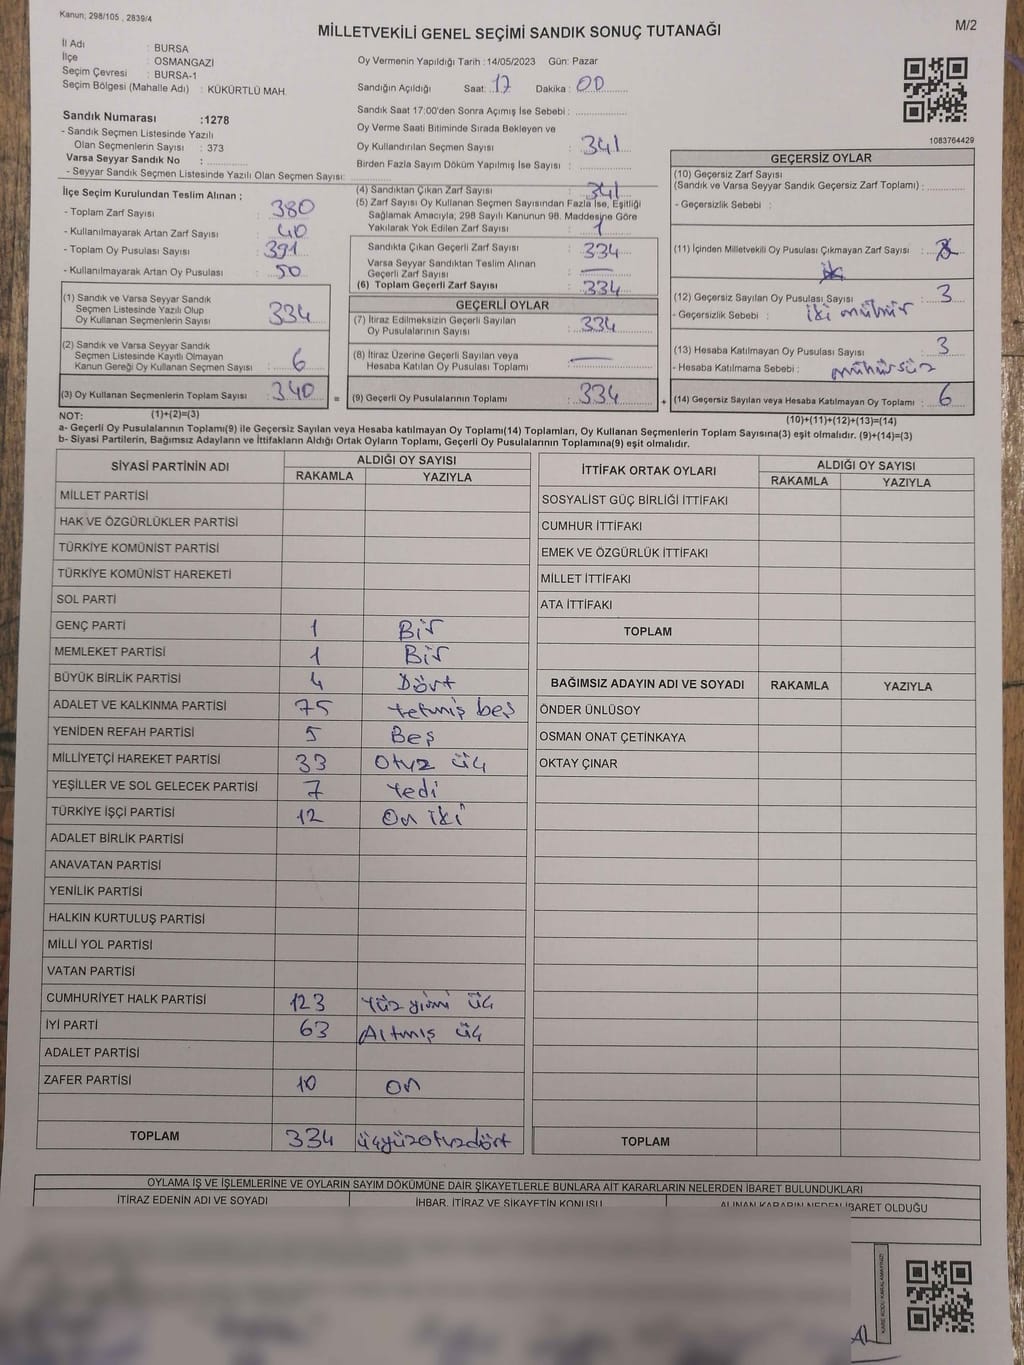 Kanun; 298/105 , 2839/4
MİLLETVEKİLİ GENEL SEÇİMİ SANDIK SONUÇ TUTANAĞI
M/2
İl Adı : BURSA
İlçe : OSMANGAZİ
Seçim Çevresi : BURSA-1
Seçim Bölgesi (Mahalle Adı) : KÜKÜRTLÜ MAH.
Sandık Numarası :1278
- Sandık Seçmen Listesinde Yazılı
Olan Seçmenlerin Sayısı : 373
Varsa Seyyar Sandık No :
- Seyyar Sandık Seçmen Listesinde Yazılı Olan Seçmen Sayısı:
Oy Vermenin Yapıldığı Tarih : 14/05/2023 Gün: Pazar
Sandığın Açıldığı Saat: 17 Dakika : 00
Sandık Saat 17:00'den Sonra Açımış İse Sebebi :
Oy Verme Saati Bitiminde Sırada Bekleyen ve
Oy Kullandırılan Seçmen Sayısı : 341
Birden Fazla Sayım Döküm Yapılmış İse Sayısı :
1083764429
İlçe Seçim Kurulundan Teslim Alınan ;
- Toplam Zarf Sayısı : 380
- Kullanılmayarak Artan Zarf Sayısı : 40
- Toplam Oy Pusulası Sayısı : 391
- Kullanılmayarak Artan Oy Pusulası : 50
(1) Sandık ve Varsa Seyyar Sandık
Seçmen Listesinde Yazılı Olup
Oy Kullanan Seçmenlerin Sayısı : 334
(2) Sandık ve Varsa Seyyar Sandık
Seçmen Listesinde Kayıtlı Olmayan
Kanun Gereği Oy Kullanan Seçmen Sayısı : 6
(3) Oy Kullanan Seçmenlerin Toplam Sayısı : 340
(4) Sandıktan Çıkan Zarf Sayısı : 341
(5) Zarf Sayısı Oy Kullanan Seçmen Sayısından Fazla İse, Eşitliği
Sağlamak Amacıyla; 298 Sayılı Kanunun 98. Maddesine Göre
Yakılarak Yok Edilen Zarf Sayısı : 1
Sandıkta Çıkan Geçerli Zarf Sayısı : 334
Varsa Seyyar Sandıktan Teslim Alınan
Geçerli Zarf Sayısı : —
(6) Toplam Geçerli Zarf Sayısı : 334
GEÇERLİ OYLAR
(7) İtiraz Edilmeksizin Geçerli Sayılan
Oy Pusulalarının Sayısı : 334
(8) İtiraz Üzerine Geçerli Sayılan veya
Hesaba Katılan Oy Pusulası Toplamı : —
= (9) Geçerli Oy Pusulalarının Toplamı : 334
GEÇERSİZ OYLAR
(10) Geçersiz Zarf Sayısı
(Sandık ve Varsa Seyyar Sandık Geçersiz Zarf Toplamı) :
- Geçersizlik Sebebi :
(11) İçinden Milletvekili Oy Pusulası Çıkmayan Zarf Sayısı :
(12) Geçersiz Sayılan Oy Pusulası Sayısı : 3
- Geçersizlik Sebebi : iki mühür
(13) Hesaba Katılmayan Oy Pusulası Sayısı : 3
- Hesaba Katılmama Sebebi : mühürsüz
+ (14) Geçersiz Sayılan veya Hesaba Katılmayan Oy Toplamı : 6
NOT: (1)+(2)=(3)
(10)+(11)+(12)+(13)=(14)
a- Geçerli Oy Pusulalarının Toplamı(9) ile Geçersiz Sayılan veya Hesaba katılmayan Oy Toplamı(14) Toplamları, Oy Kullanan Seçmenlerin Toplam Sayısına(3) eşit olmalıdır. (9)+(14)=(3)
b- Siyasi Partilerin, Bağımsız Adayların ve İttifakların Aldığı Ortak Oyların Toplamı, Geçerli Oy Pusulalarının Toplamına(9) eşit olmalıdır.
SİYASİ PARTİNİN ADI ALDIĞI OY SAYISI
RAKAMLA YAZIYLA
MİLLET PARTİSİ
HAK VE ÖZGÜRLÜKLER PARTİSİ
TÜRKİYE KOMÜNİST PARTİSİ
TÜRKİYE KOMÜNİST HAREKETİ
SOL PARTİ
GENÇ PARTİ 1 Bir
MEMLEKET PARTİSİ 1 Bir
BÜYÜK BİRLİK PARTİSİ 4 Dört
ADALET VE KALKINMA PARTİSİ 75 Yetmiş beş
YENİDEN REFAH PARTİSİ 5 Beş
MİLLİYETÇİ HAREKET PARTİSİ 33 Otuz üç
YEŞİLLER VE SOL GELECEK PARTİSİ 7 Yedi
TÜRKİYE İŞÇİ PARTİSİ 12 On iki
ADALET BİRLİK PARTİSİ
ANAVATAN PARTİSİ
YENİLİK PARTİSİ
HALKIN KURTULUŞ PARTİSİ
MİLLİ YOL PARTİSİ
VATAN PARTİSİ
CUMHURİYET HALK PARTİSİ 123 Yüz yirmi üç
İYİ PARTİ 63 Altmış üç
ADALET PARTİSİ
ZAFER PARTİSİ 10 On
TOPLAM 334 üçyüzotuzdört
İTTİFAK ORTAK OYLARI ALDIĞI OY SAYISI
RAKAMLA YAZIYLA
SOSYALİST GÜÇ BİRLİĞİ İTTİFAKI
CUMHUR İTTİFAKI
EMEK VE ÖZGÜRLÜK İTTİFAKI
MİLLET İTTİFAKI
ATA İTTİFAKI
TOPLAM
BAĞIMSIZ ADAYIN ADI VE SOYADI RAKAMLA YAZIYLA
ÖNDER ÜNLÜSOY
OSMAN ONAT ÇETİNKAYA
OKTAY ÇINAR
TOPLAM
OYLAMA İŞ VE İŞLEMLERİNE VE OYLARIN SAYIM DÖKÜMÜNE DAİR ŞİKAYETLERLE BUNLARA AİT KARARLARIN NELERDEN İBARET BULUNDUKLARI
İTİRAZ EDENİN ADI VE SOYADI İHBAR, İTİRAZ VE ŞİKAYETİN KONUSU ALINAN KARARIN NEDEN İBARET OLDUĞU
KARE KODU KARALAMAYINIZ!
AL